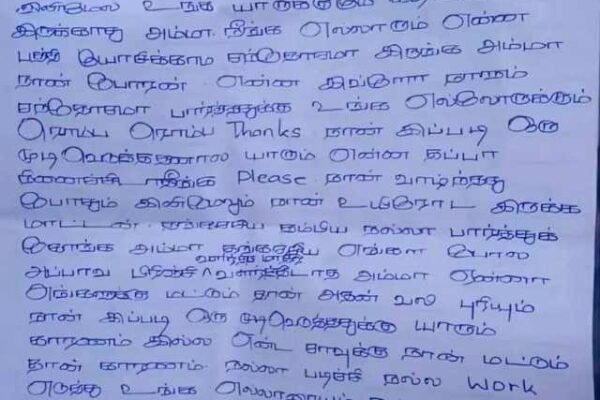 இனிமேல் உங்க யாருக்கும்
இருக்காது அம்மா. நீங்க எல்லாரும் என்ன
பத்தி யோசிக்காம சந்தோசமா இருங்க அம்மா
நான் போறன். என்ன இவ்ளோ நாளும்
சந்தோசமா பார்த்ததுக்கு உங்க எல்லோருக்கும்
ரொம்ப ரொம்ப Thanks நான் இப்படி ஒரு
முடிவெடுத்ததனால யாரும் என்ன தப்பா
நினைச்சி டாதீங்க Please நான் வாழ்ந்தது
போதும் இனிமேலும் நான் உயிரோட இருக்க
மாட்டன். தங்கச்சிய தம்பிய நல்லா பார்த்துக்
கோங்க அம்மா தங்கச்சிய எங்கள போல
அப்பாவ பிரிஞ்சி வளர்த்திடாத அம்மா ஏன்னா
எங்களுக்கு மட்டும் தான் அதன் வலி புரியும்
நான் இப்படி ஒரு முடிவெடுத்ததுக்கு யாரும்
காரணம் இல்ல என்ட சாவுக்கு நான் மட்டும்
தான் காரணம். நல்லா படிச்சி நல்ல Work
எடுத்து உங்க எல்லாரையும்